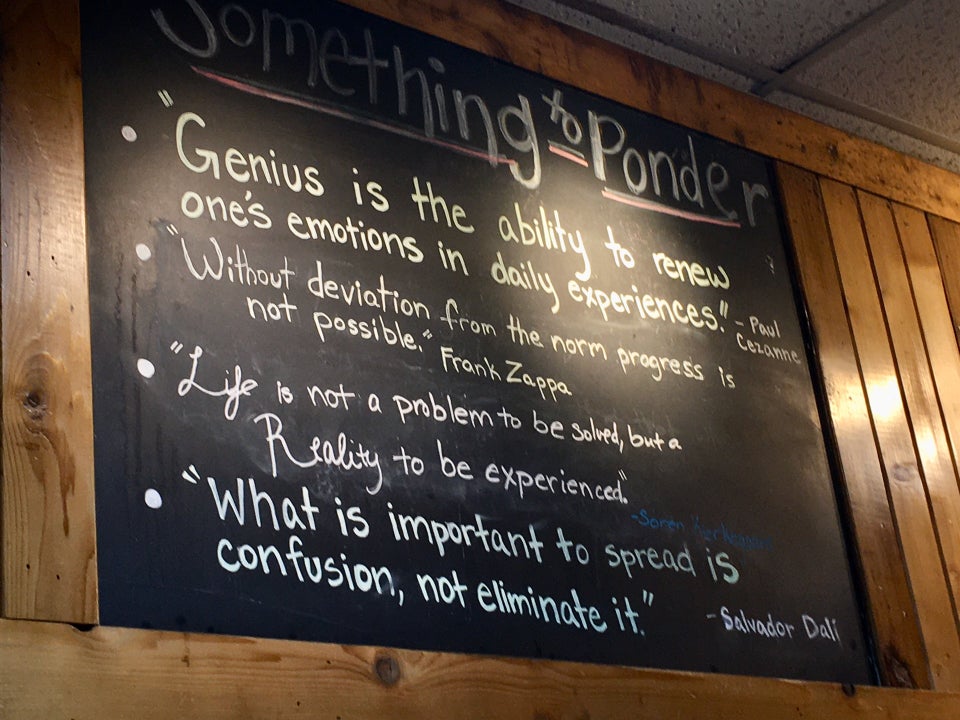 Something to Ponder
• "Genius is the ability to renew
one's emotions in daily experiences." - Paul
Cezanne
• "Without deviation from the norm progress is
not possible." Frank Zappa
• "Life is not a problem to be solved, but a
Reality to be experienced."
-Soren
• "What is important to spread is
confusion, not eliminate it."
- Salvador Dali